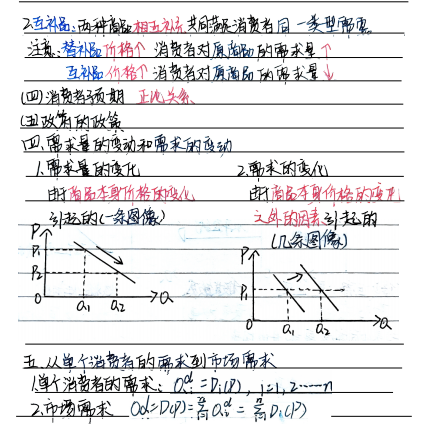 2.互补品:两种商品相互补充共同满足消费者同一类型需要
注意:替补品价格↑ 消费者对原商品的需求量↑
互补品价格↑ 消费者对原商品的需求量↓
(四)消费者预期 正比关系
(五)政府的政策
四.需求量的变动和需求的变动
1.需求量的变化 2.需求的变化
由于商品本身价格的变化 由于商品本身价格的变化
引起的(一条图像) 之外的因素引起的
(几条图像)
P
P1
P2
O a1 a2 Q
P
P1
O a1 a2 Q
五.从单个消费者的需求到市场需求
1.单个消费者的需求: Qᵢᵈ=Dᵢ(P), i=1,2……n
2.市场需求 Qd=D(P)=Σⁿᵢ₌₁Qᵢᵈ=Σⁿᵢ₌₁Dᵢ(P)